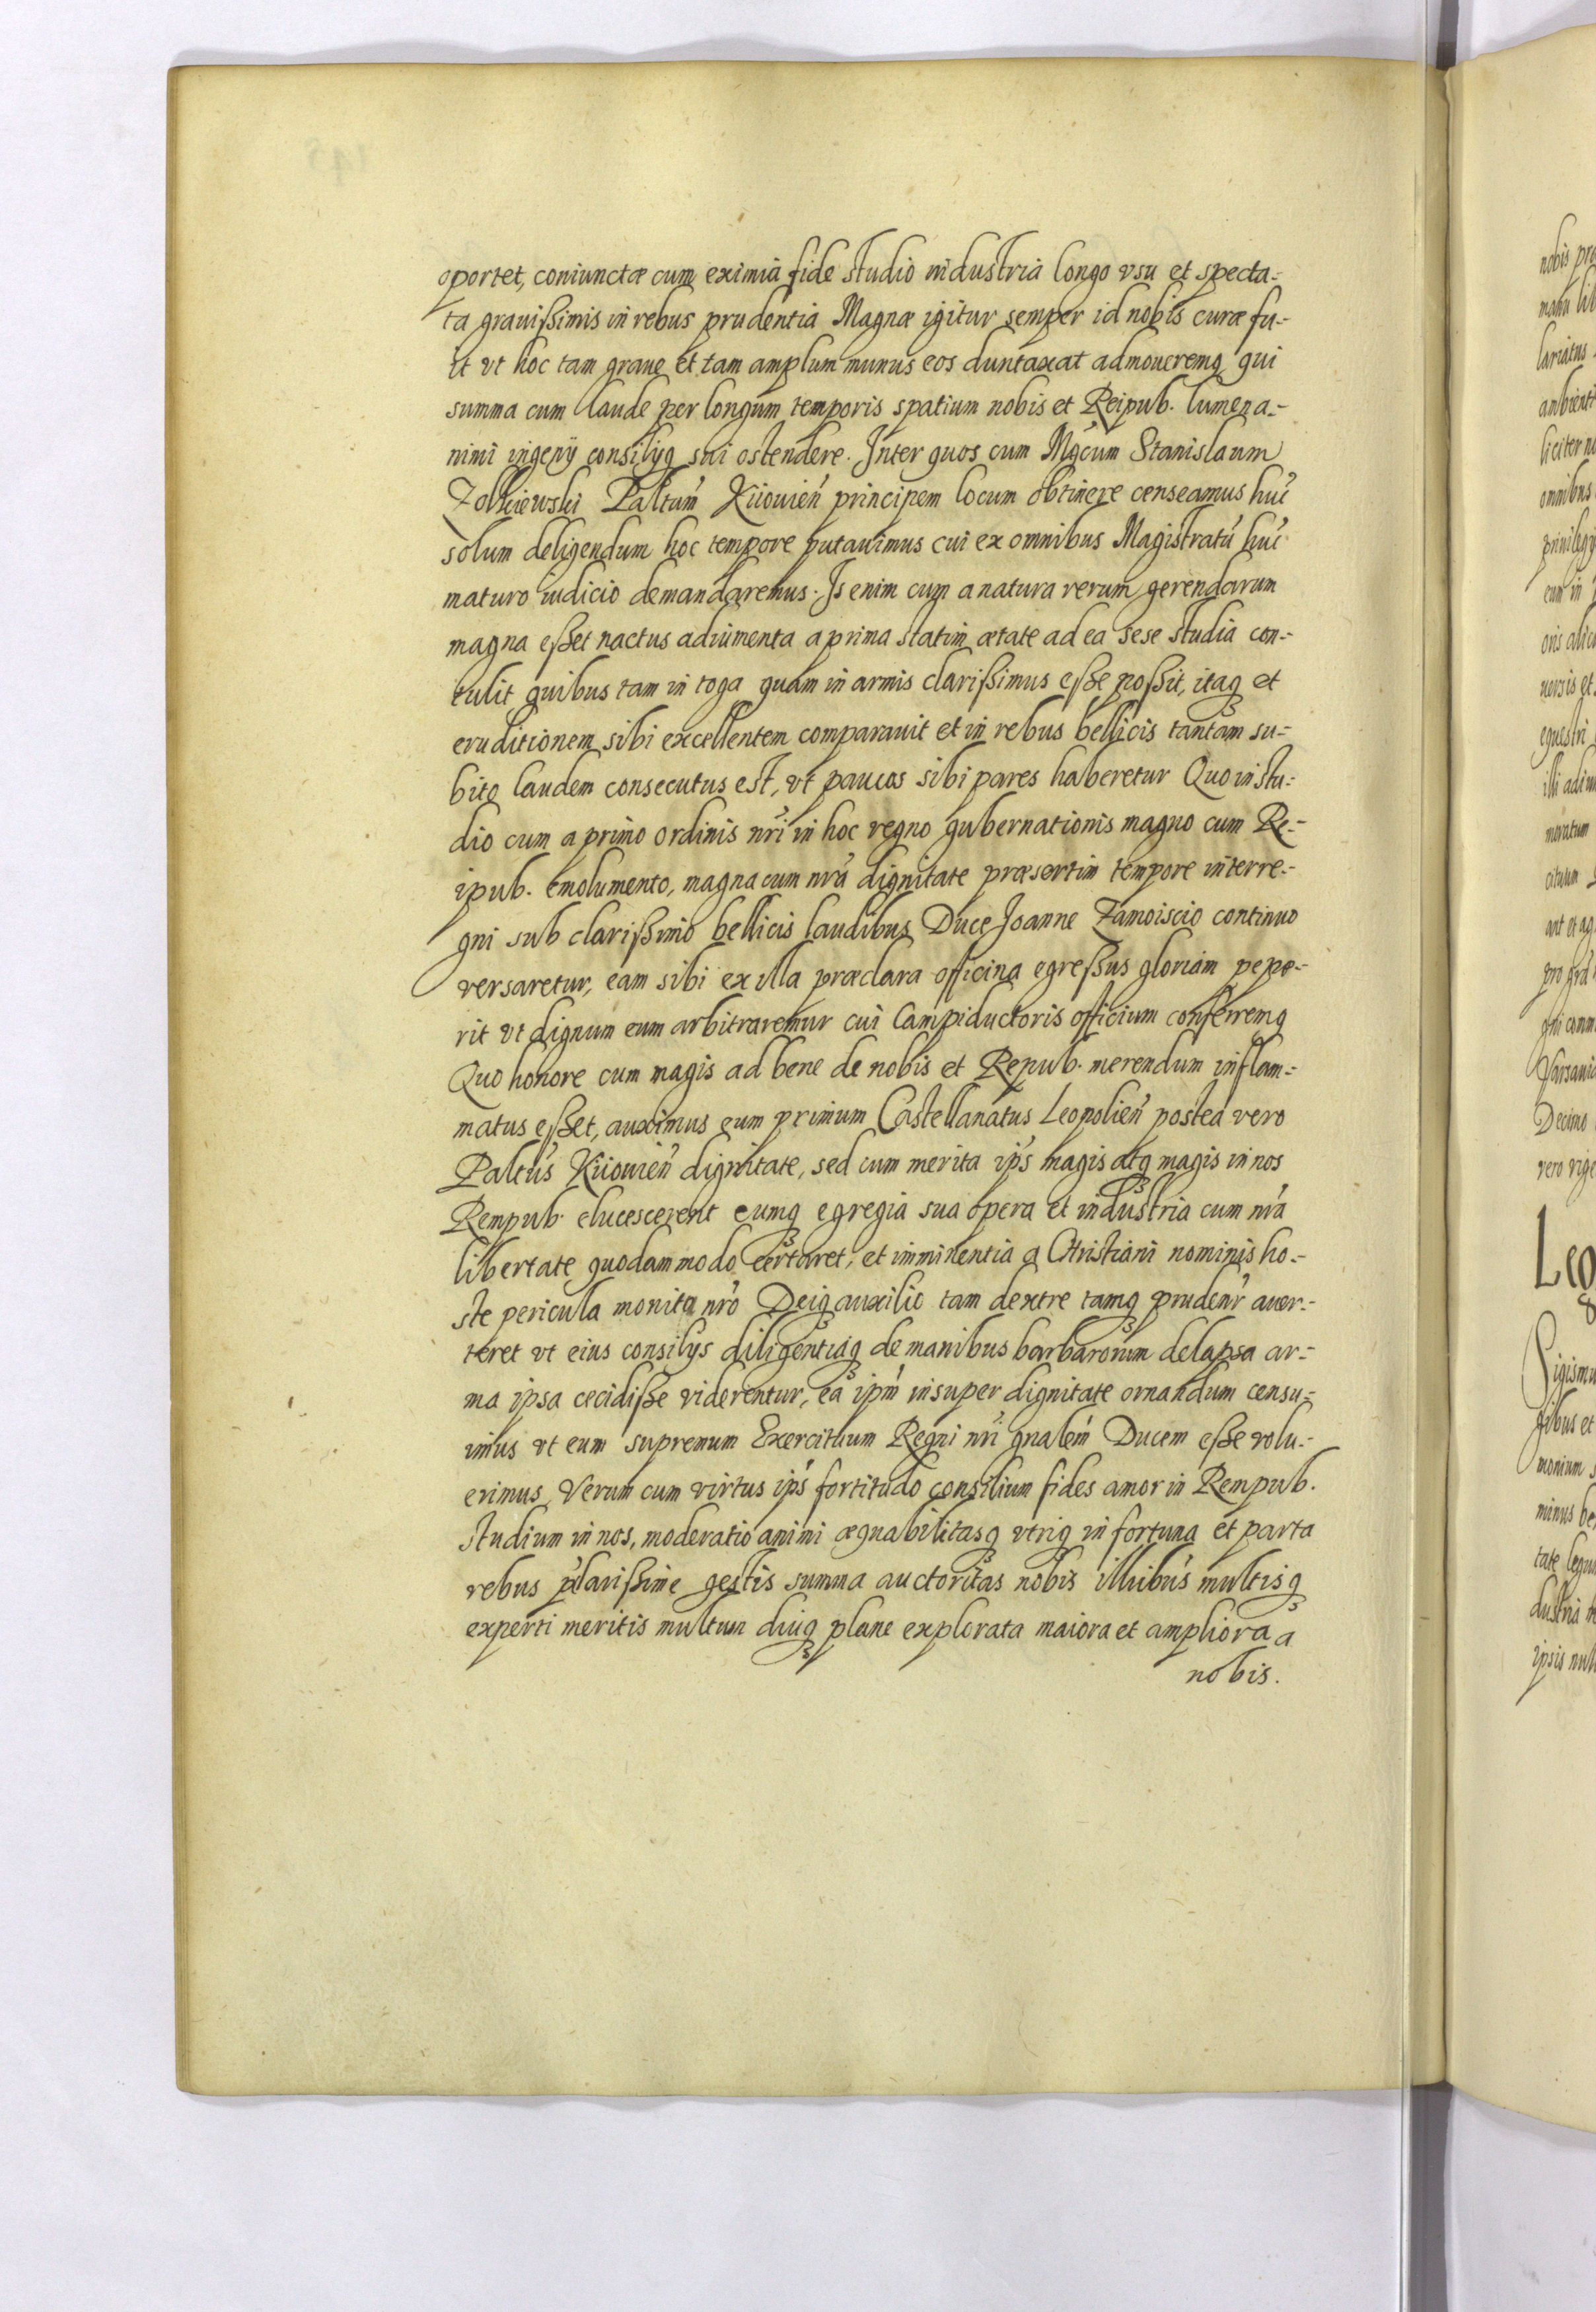 oportet, coniunctæ cum eximia fide studio industria longo vsu et specta-
ta grauissimis in rebus prudentia Magnæ igitur semper id nobis curæ fu-
it vt hoc tam graue et tam amplum munus eos duntaxat admoueremq qui
summa cum laude per longum temporis spatium nobis et Reipub. lumen a-
nimi ingenÿ consilÿq sui ostendere. Inter quos cum Mgcum Stanislaum
Zolkiewski Paltum Kiiouien principem locum obtinere censeamus huc
solum deligendum hoc tempore putauimus cui ex omnibus Magistratu huc
maturo iudicio demandaremus. Is enim cum a natura rerum gerendarum
magna esset nactus adiumenta a prima statim ætate ad ea sese studia con-
tulit quibus tam in toga quam in armis clarissimus esse possit, itaq et
eruditionem sibi excellentem comparauit et in rebus bellicis tantam su-
bito laudem consecutus est, vt paucos sibi pares haberetur Quo in stu-
dio cum a primo ordinis nri in hoc regno gubernationis magno cum Re-
ipub. emolumento, magna cum nra dignitate præsertim tempore interre-
gni sub clarissimo bellicis laudibus Duce Joanne Zamoiscio continuo
versaretur, eam sibi ex illa præclara officina egressus gloriam pepe-
rit vt dignum eum arbitraremur cui Campiductoris officium conferremq
Quo honore cum magis ad bene de nobis et Repub. merendum inflam-
matus esset, auximus eum primum Castellanatus Leopolien postea vero
Paltus Kiiouien dignitate, sed cum merita ips magis atq magis in nos
Rempub. elucescerent eumq egregia sua opera et industria cum nra
libertate quodammodo certaret, et imminentia a Christiani nominis ho-
ste pericula monita nro Deiq auxilio tam dextre tamq prudenr auer-
teret vt eius consilÿs diligentiaq de manibus barbarorum delapsa ar-
ma ipsa cecidisse viderentur, ea ipm insuper dignitate ornandum censu-
imus vt eum supremum Exercituum Regni nri gnalem Ducem esse volu-
erimus, Verum cum virtus ips fortitudo consilium fides amor in Rempub.
studium in nos, moderatio animi æquabilitasq vtriq in fortuna et parta
rebus pclarissime gestis summa auctoritas nobis illiibus multisq
experti meritis multum diuq plane explorata maiora et ampliora a
nobis.